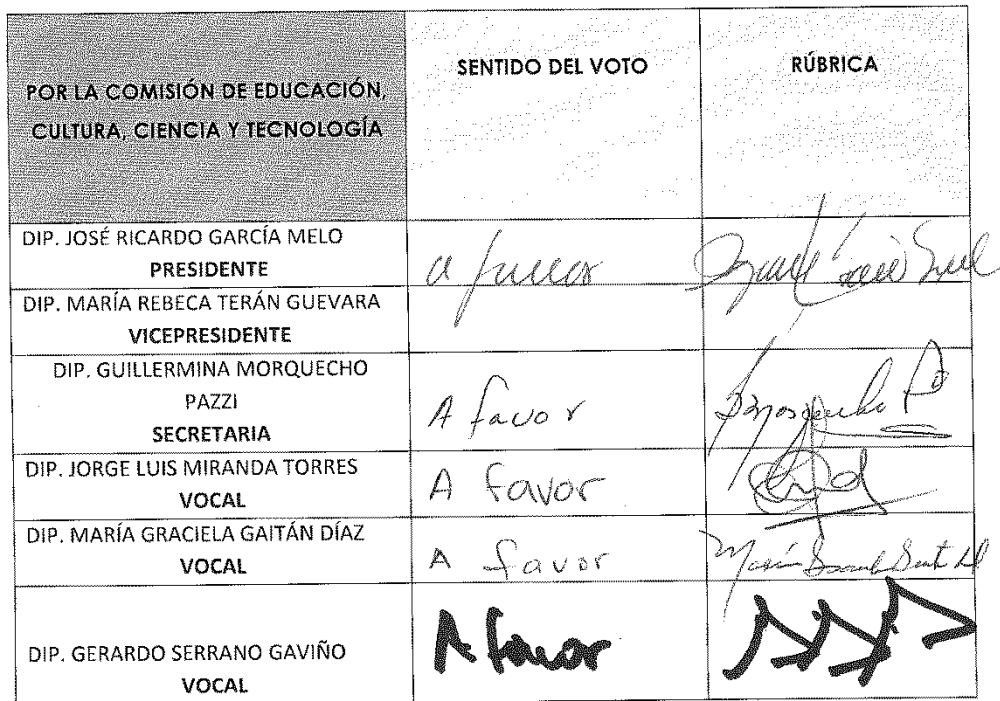 POR LA COMISIÓN DE EDUCACIÓN,
CULTURA, CIENCIA Y TECNOLOGÍA
SENTIDO DEL VOTO
RÚBRICA
DIP. JOSÉ RICARDO GARCÍA MELO
PRESIDENTE
a favor
DIP. MARÍA REBECA TERÁN GUEVARA
VICEPRESIDENTE
DIP. GUILLERMINA MORQUECHO
PAZZI
SECRETARIA
A favor
DIP. JORGE LUIS MIRANDA TORRES
VOCAL
A favor
DIP. MARÍA GRACIELA GAITÁN DÍAZ
VOCAL
A favor
DIP. GERARDO SERRANO GAVIÑO
VOCAL
A favor